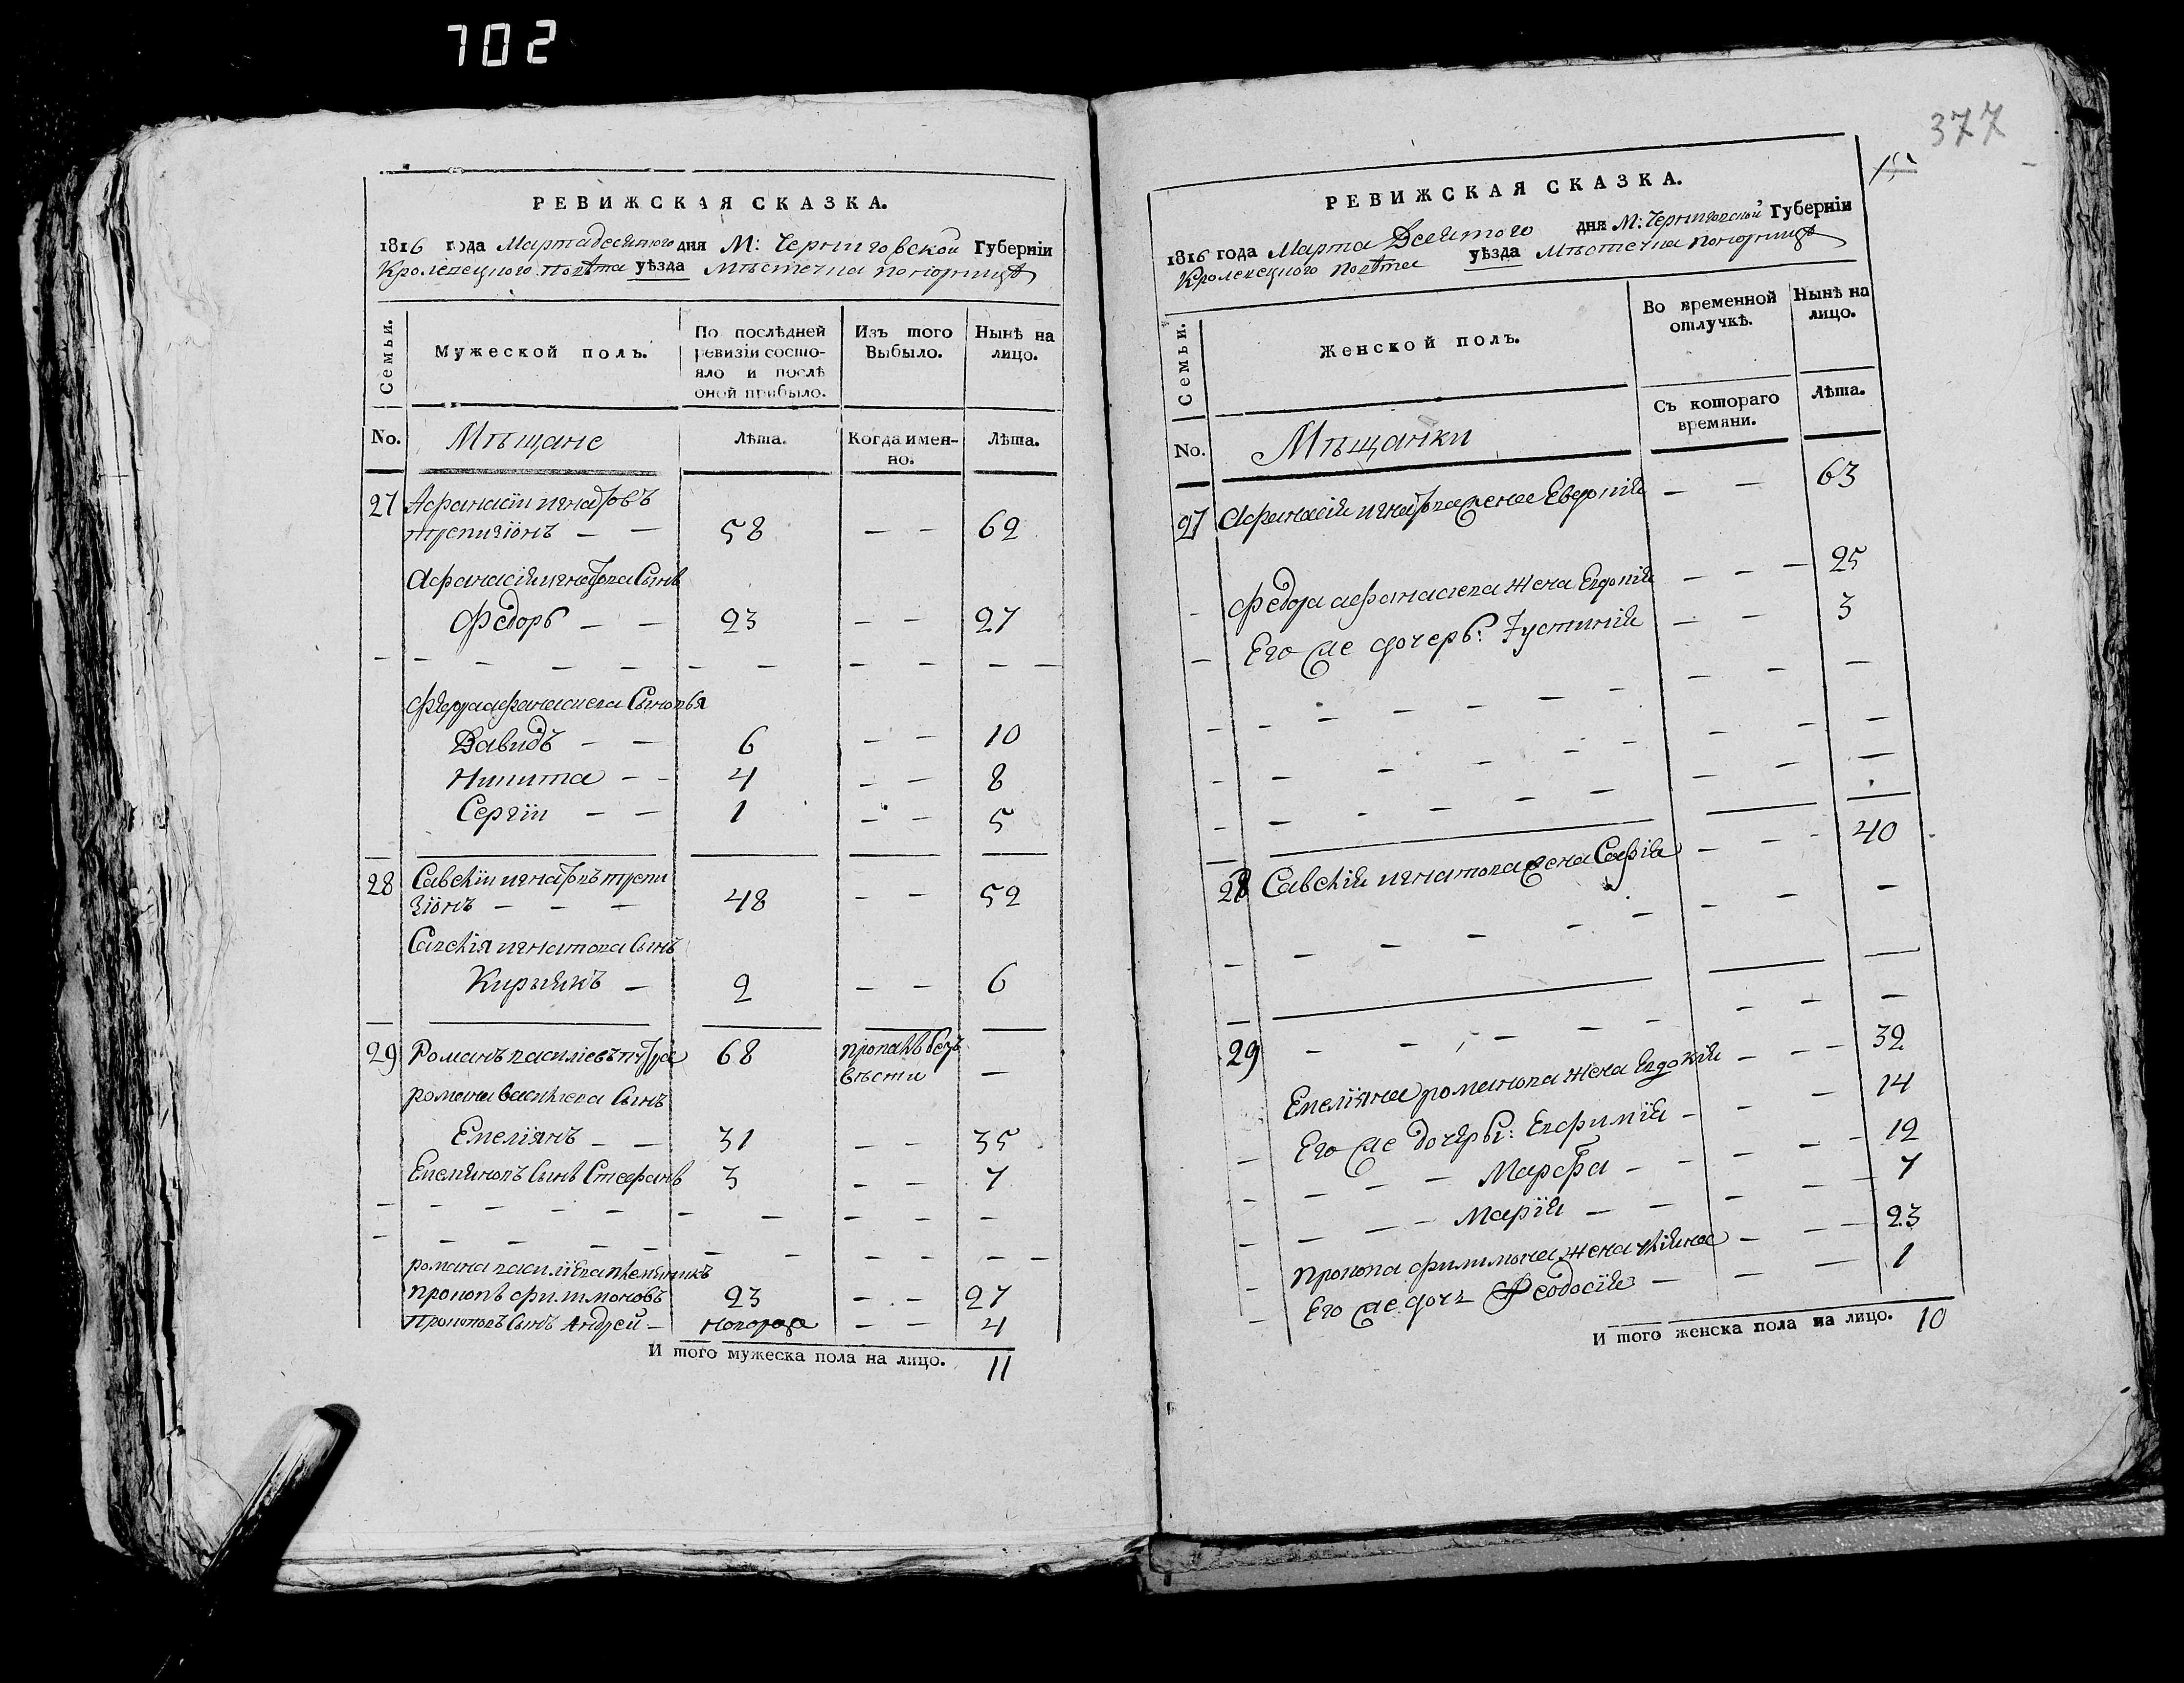 702
РЕВИЖСКАЯ СКАЗКА.
1816 года Марта десятого дня М: Черниговской Губерніи
Кролевецкого повѣта уѣзда Мѣстечка Понорницѣ
Семьи.
Мужеской полъ.
По послѣдней ревизіи состояло и послѣ оной прибыло.
Изъ того Выбыло.
Нынѣ на лицо.
No.
Мѣщане
Лѣта.
Когда именно.
Лѣта.
27 Афанасій Игнатовъ
58 — — 62
Афанасія Игнатова Сынъ
Федоръ — — 23 — — 27
Федора Афанасиева Сыновья
Давидъ — — 6 — — 10
Никита — — 4 — — 8
Сергіи — — 1 — — 5
28 Савскіи Игнатовъ
48 — — 52
Савскія Игнатова Сынъ
Кирыякъ — 2 — — 6
29 Романъ Василіевъ 68 пропалъ безъ
вѣсти —
Романа Василиева Сынъ
Емеліянъ — — 31 — — 35
Емеляновъ Сынъ Стефанъ 3 — — 7
Романа Василіева племяникъ
Прокопъ Филимоновъ 23 — — 27
Прокоповъ Сынъ Андрей — — — 4
И того мужеска пола на лицо. 11
377
РЕВИЖСКАЯ СКАЗКА.
1816 года Марта Десятого дня М: Черниговской Губерніи
Кролевецкого Повѣта уѣзда Мѣстечка Понорницѣ
Семьи.
Женской полъ.
Во временной отлучкѣ.
Нынѣ на лицо.
No.
Мѣщанки
Съ котораго времяни.
Лѣта.
27 Афанасія Игнатова жена Евдокія — — 63
Федора Афанасиева жена Евдокія — — — 25
Его же дочерь: Іустинія — — 3
28 Савскія Игнатова жена Софія — — — 40
29
Емеліяна Романова жена Евдокія — — — 32
Его же дочеры: Евфимія — — — 14
Марфа — — — 12
Марія — — — 7
Прокопа Филимона жена Уліяна — — — 23
Его же дочь Феодосія — — — 1
И того женска пола на лицо. 10